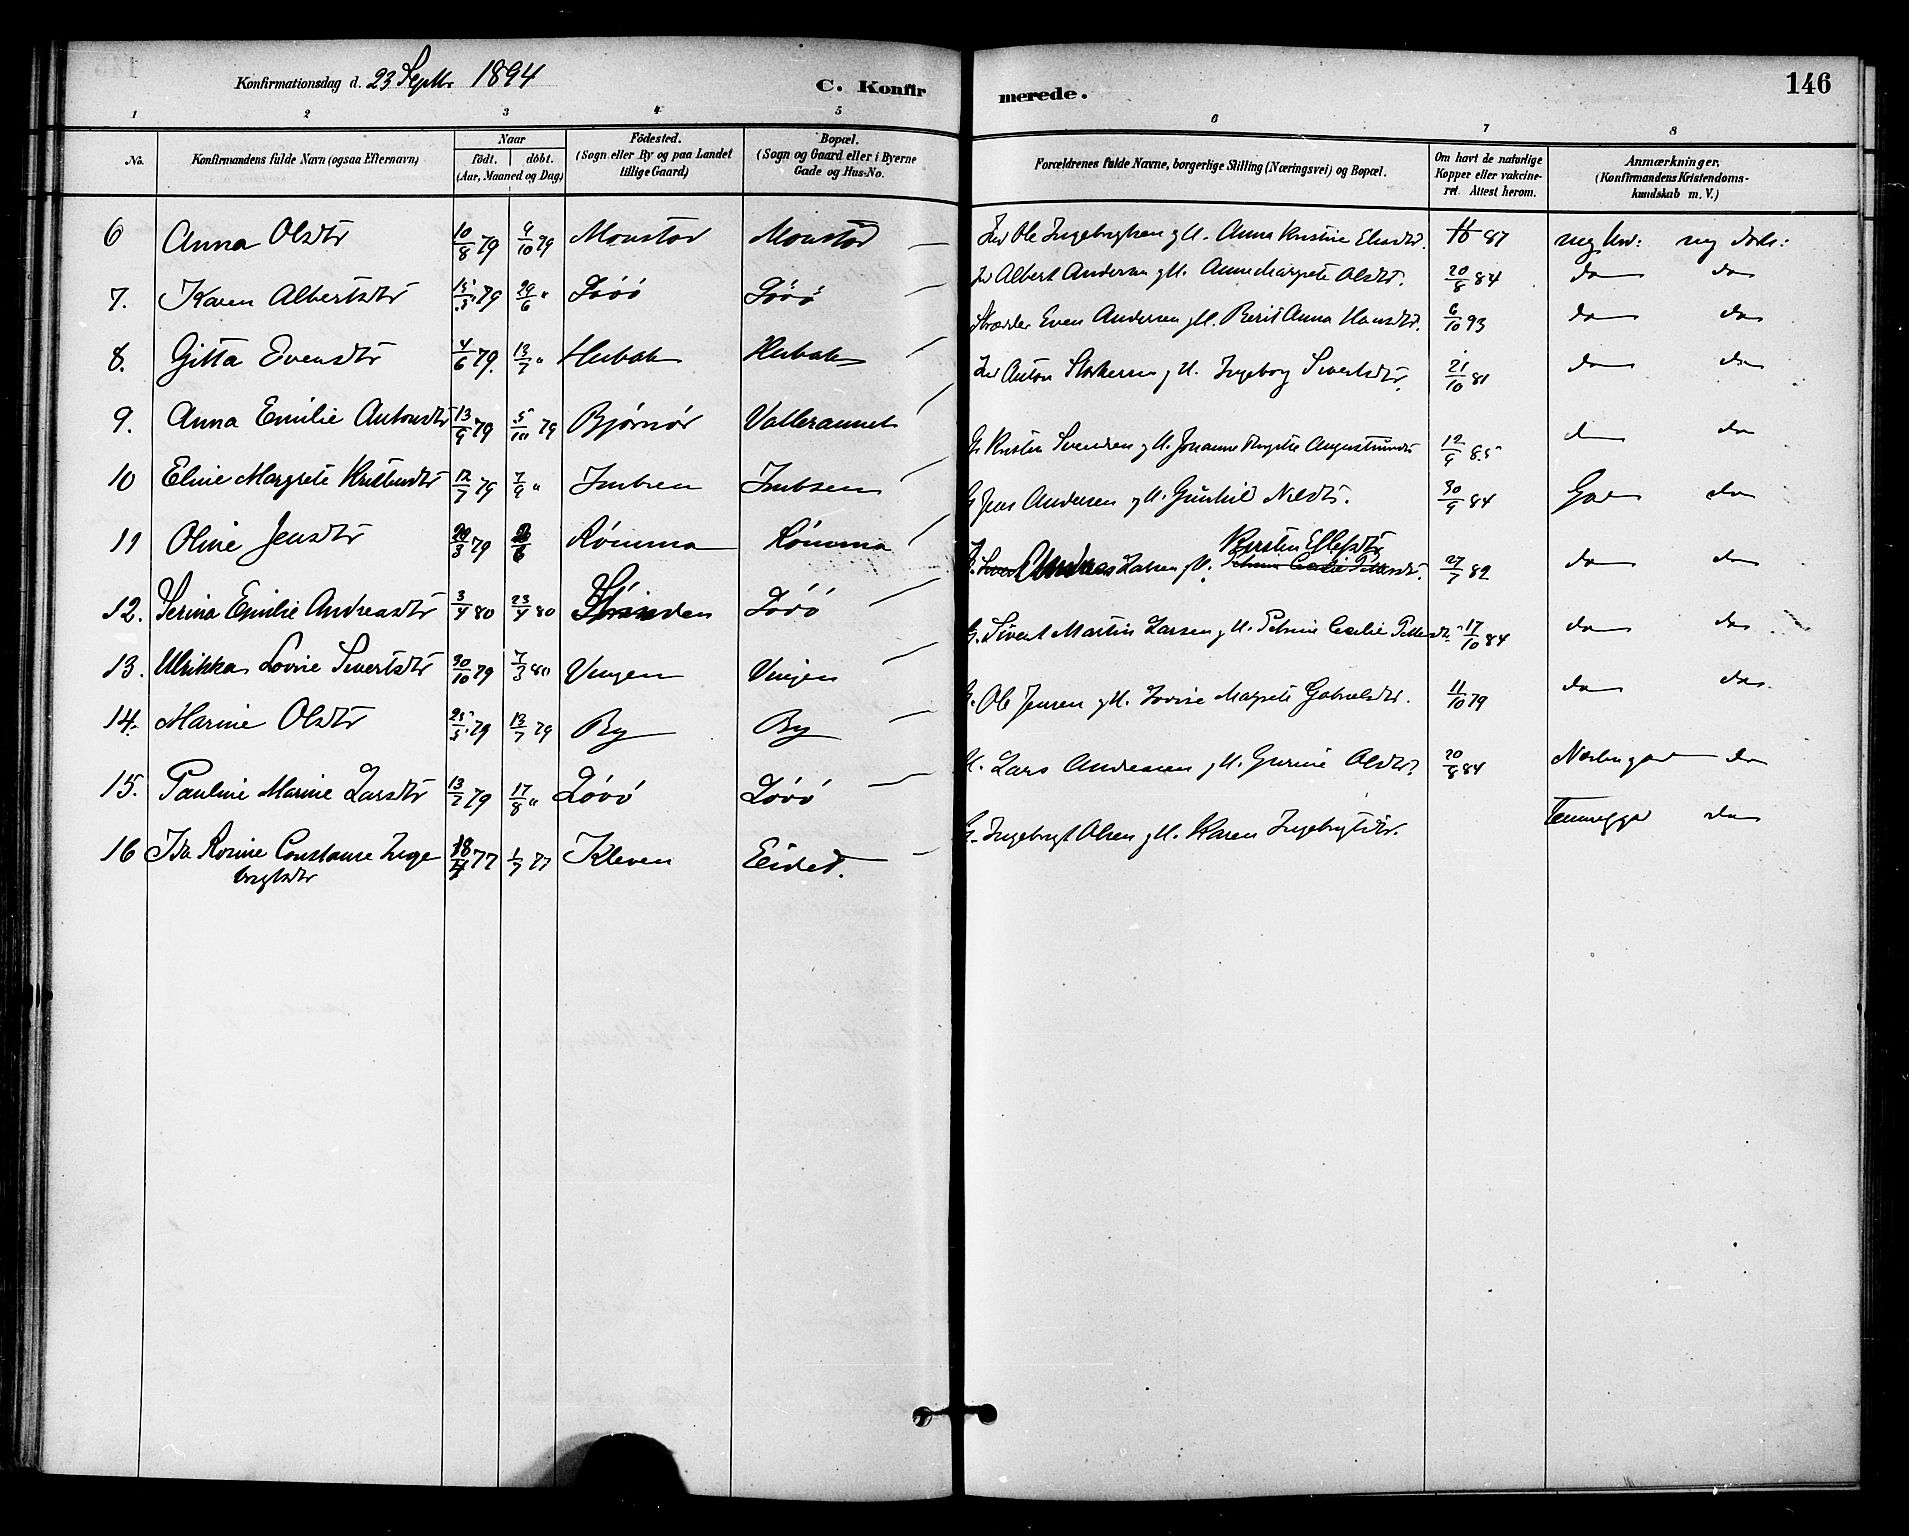 Konfirmationsdag d. 23 Septbr 1894
C. Konfirmerede.
146
1 2 3 4 5 6 7 8
No.
Konfirmandens fulde Navn (ogsaa Efternavn)
Naar
födt. döbt.
(Aar, Maaned og Dag)
Födested.
(Sogn eller By og paa Landet
tillige Gaard)
Bopæl.
(Sogn og Gaard eller i Byerne
Gade og Hus-No.
Forældrenes fulde Navne, borgerlige Stilling (Næringsvei) og Bopæl.
Om havt de naturlige
Kopper eller vakcine-
ret. Attest herom.
Anmærkninger.
(Konfirmandens Kristendoms-
kundskab m. V.)
6 Anna Olsdtr 10/8 79 9/10 79 Monstad Monstad Ole Ingebrigtsen g H. Anna Kristine 87 meg
7. Karen Albertsdtr 15/5 79 29/6 " Lövö Lövö Albert Andersen g H. Anne Margrete Olsdtr. 20/8 84 do do
8. Gitta Evensdtr 4/6 79. 13/7 " Hubak Hubak Skrædder Even Andersen g H. Berit Anna Hansdtr. 6/10 93 do do
9. Anna Emilie Antonsdtr 13/9 79 5/10 79 Bjørnør Vallersundet Anton g H. Ingeborg Sivertsdtr. 21/10 81 do do
10 Eline Margrete Kristensdtr 12/7 79 7/9 " Imbsen Imbsen Kristen Svendsen g H. Johanna 12/9 85 do do
11 Oline Jensdtr 79 Römma Römma G Jens Andersen g H. Gunhild Nilsdtr. 30/9 84 God do
12. Serina Emilie Andreasdtr 3/4 80 23/4 80 Stranden Lövö Andreas Larsen g H. Kirsten Ellefsdtr 27/7 82 do do
13. Ulrikka Lovise Sivertsdtr 30/10 79 7/3 80 Vingen Vingen G. Sivert Martin Larsen g H. Petrine Cecilie Pettersdtr. 17/10 84 do do
14. Marine Olsdtr 25/5 79 13/7 79 By By G. Ole Jensen g H. Lovise Margrete Gabrielsdtr. 11/10 79 do do
15. Pauline Marine Larsdtr 13/7 79 17/8 " Lövö Lövö Lars Andresen g H. Gurine Olsdtr. 20/8 84 do
16 Ida Rosine Constanse Inge
brigtsdtr 77 1/7 77 Kleven Eidet. G. Ingebrigt Olsen g H. Karen Ingebrigtsdtr. do